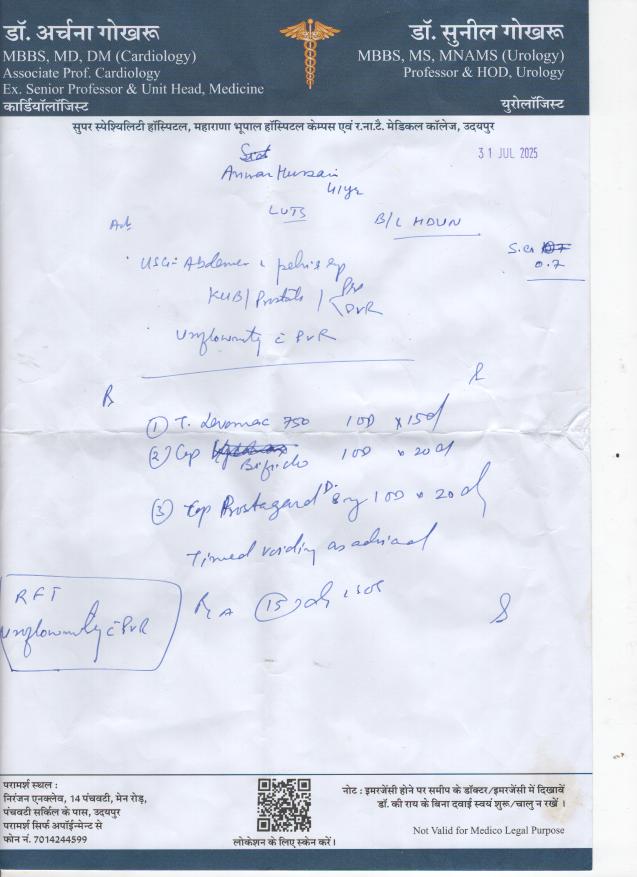 डॉ. अर्चना गोखरू
MBBS, MD, DM (Cardiology)
Associate Prof. Cardiology
Ex. Senior Professor & Unit Head, Medicine
कार्डियॉलॉजिस्ट
डॉ. सुनील गोखरू
MBBS, MS, MNAMS (Urology)
Professor & HOD, Urology
युरोलॉजिस्ट
सुपर स्पेश्यिलिटी हॉस्पिटल, महाराणा भूपाल हॉस्पिटल केम्पस एवं र.ना.टै. मेडिकल कॉलेज, उदयपुर
31 JUL 2025
Anwar Hussain
41yr
LUTS
B/L HDUN
Adv
S.Cr
0.7
USG- Abdomen & pelvis
KUB/Prostate / Pre
PVR
Uroflowmetry c PVR
R
① T. Levomac 750 1OD x 15d
② Cap Bifricho 1OD x 20d
③ Cap Prostagard D. 8mg 1OD x 20d
Timed voiding as advised
R/A 15d
RFT
Uroflowmetry c PVR
परामर्श स्थल :
निरंजन एनक्लेव, 14 पंचवटी, मेन रोड़,
पंचवटी सर्किल के पास, उदयपुर
परामर्श सिर्फ अपॉईन्मेन्ट से
फोन नं. 7014244599
लोकेशन के लिए स्कैन करें।
नोट : इमरजेंसी होने पर समीप के डॉक्टर/इमरजेंसी में दिखावें
डॉ. की राय के बिना दवाई स्वयं शुरू/चालु न रखें ।
Not Valid for Medico Legal Purpose